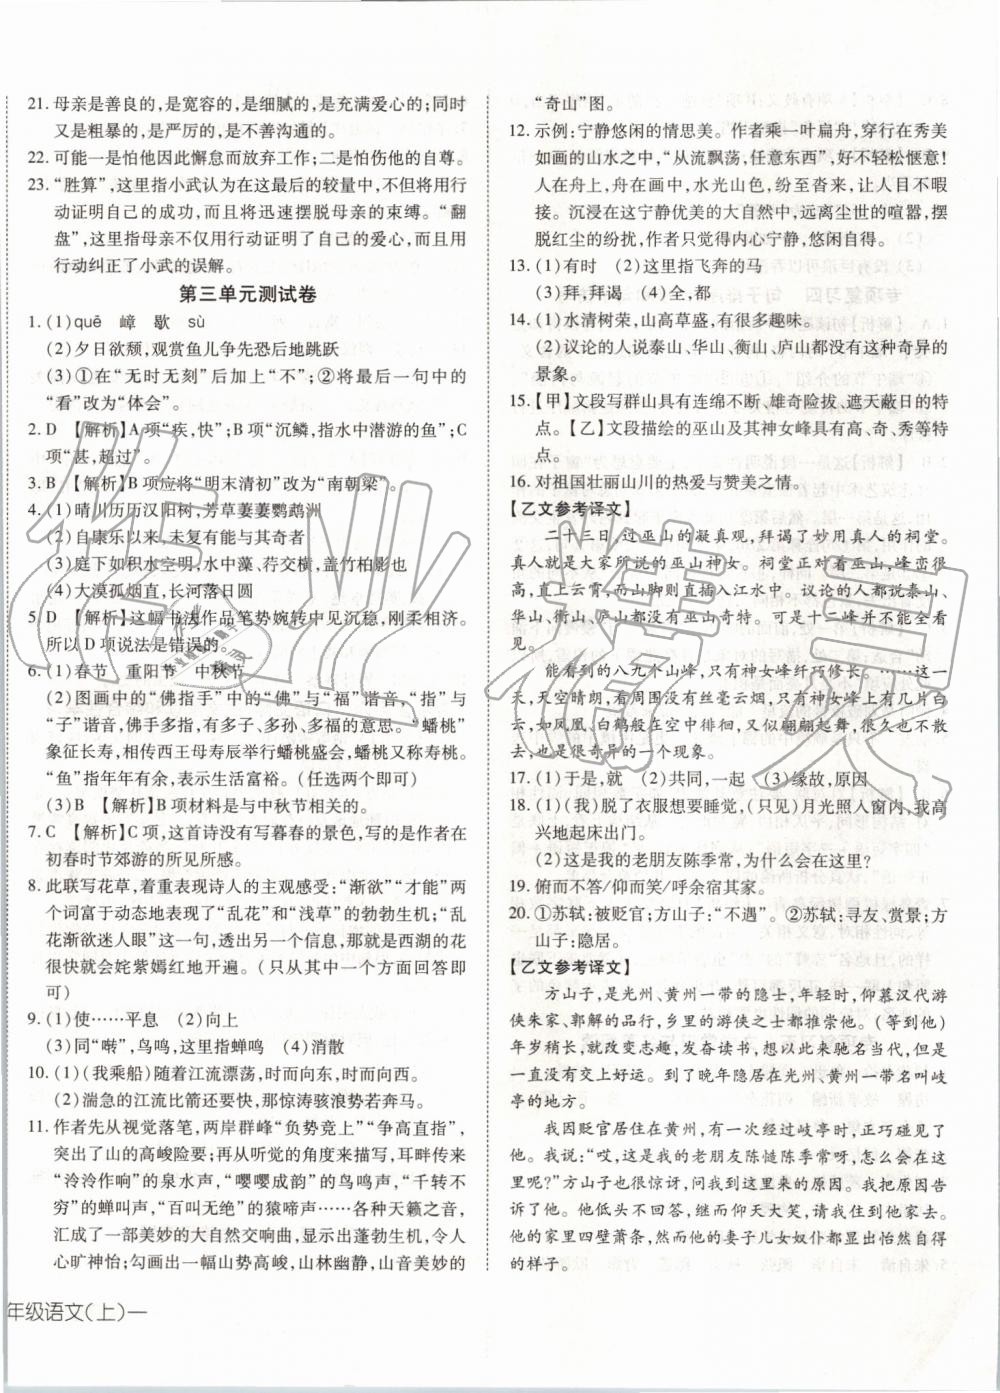 21. 母亲是善良的,是宽容的,是细腻的,是充满爱心的;同时
又是粗暴的,是严厉的,是不善沟通的。
22. 可能一是怕他因此懈怠而放弃工作;二是怕伤他的自尊。
23. “胜算”,这里指小武认为在这最后的较量中,不但将用行
动证明自己的成功,而且将迅速摆脱母亲的束缚。“翻
盘”,这里指母亲不仅用行动证明了自己的爱心,而且用
行动纠正了小武的误解。
第三单元测试卷
1. (1)quē 嶂 歇 sù
(2)夕日欲颓,观赏鱼儿争先恐后地跳跃
(3)①在“无时无刻”后加上“不”;②将最后一句中的
“看”改为“体会”。
2. D 【解析】A项“疾,快”;B项“沉鳞,指水中潜游的鱼”;C
项“甚,超过”。
3. B 【解析】B项应将“明末清初”改为“南朝梁”。
4. (1)晴川历历汉阳树,芳草萋萋鹦鹉洲
(2)自康乐以来,未复有能与其奇者
(3)庭下如积水空明,水中藻、荇交横,盖竹柏影也
(4)大漠孤烟直,长河落日圆
5. D 【解析】这幅书法作品笔势婉转中见沉稳,刚柔相济。
所以D项说法是错误的。
6. (1)春节 重阳节 中秋节
(2)图画中的“佛指手”中的“佛”与“福”谐音,“指”与
“子”谐音,佛手多指,有多子、多孙、多福的意思。“蟠桃”
象征长寿,相传西王母寿辰举行蟠桃盛会,蟠桃又称寿桃。
“鱼”指年年有余,表示生活富裕。(任选两个即可)
(3)B 【解析】B项材料是与中秋节相关的。
7. C 【解析】C项,这首诗没有写暮春的景色,写的是作者在
初春时节郊游的所见所感。
8. 此联写花草,着重表现诗人的主观感受:“渐欲”“才能”两
个词富于动态地表现了“乱花”和“浅草”的勃勃生机,“乱
花渐欲迷人眼”这一句,透出另一个信息,那就是西湖的花
很快就会姹紫嫣红地开遍。(只从一个方面回答即
可)
9. (1)使……平息 (2)向上
(3)同“啭”,鸟鸣,这里指蝉鸣 (4)消散
10. (1)(我乘船)随着江流漂荡,时而向东,时而向西。
(2)湍急的江流比箭还要快,那惊涛骇浪势若奔马。
11. 作者先从视觉落笔,两岸群峰“负势竞上”“争高直指”,
突出了山的高峻险要;再从听觉的角度来描写,先写
“泠泠作响”的泉水声,“嘤嘤成韵”的鸟鸣声,“千转不
穷”的蝉叫声,“百叫无绝”的猿啼声……各种天籁之音,
汇成了一部美妙的大合唱,显示出蓬勃生机,令人
心旷神怡;勾画出一幅山势高峻,山林幽静,山音美妙的
年级语文(上)一
“奇山”图。
12. 示例:宁静悠闲的情思美。作者乘一叶扁舟,穿行在秀美
如画的山水之中,“从流飘荡,任意东西”,好不轻松惬意!
人在舟上,舟在画中,水光山色,纷至沓来,让人目不暇
接。沉浸在这宁静优美的大自然中,远离尘世的喧嚣,摆
脱红尘的纷扰,作者只觉得内心宁静,悠闲自得。
13. (1)有时 (2)这里指飞奔的马
(3)拜,拜谒 (4)全,都
14. (1)水清树荣,山高草盛,有很多趣味。
(2)议论的人说泰山、华山、衡山、庐山都没有这种奇异的
景象。
15. 【甲】文段写群山具有连绵不断、雄奇险拔、遮天蔽日的特
点。【乙】文段描绘的巫山及其神女峰具有高、奇、秀等特
点。
16. 对祖国壮丽山川的热爱与赞美之情。
【乙文参考译文】
二十三日,过巫山的凝真观,拜谒了妙用真人的祠堂。
真人就是大家所说的巫山神女。祠堂正对着巫山,峰峦很
高,直冲云霄,山脚则直插入江水中。议论的人都说泰山、
华山、衡山、庐山都没有巫山奇特。可十二峰并不能全看
见。
能看到的八九个山峰,只有神女峰纤巧修长。……这一
天,天空晴朗,看周围没有丝毫云烟,只有神女峰上有几片白
云,如凤凰、白鹤般在空中徘徊,又似翩翩起舞,很久也不散
去,也是很奇异的一个现象。
17. (1)于是,就 (2)共同,一起 (3)缘故,原因
18. (1)(我)脱了衣服想要睡觉,(只见)月光照入窗内,我高
兴地起床出门。
(2)这是我的老朋友陈季常,为什么会在这里?
19. 俯而不答/仰而笑/呼余宿其家。
20. ①苏轼:被贬官;方山子:“不遇”。②苏轼:寻友、赏景;方
山子:隐居。
【乙文参考译文】
方山子,是光州、黄州一带的隐士,年轻时,仰慕汉代游
侠朱家、郭解的品行,乡里的游侠之士都推崇他。(等到他)
年岁稍长,就改变志趣,发奋读书,想以此来驰名当代,但是
一直没有交上好运。到了晚年隐居在光州、黄州一带名叫岐
亭的地方。
我因贬官居住在黄州,有一次经过岐亭时,正巧碰见了
他。我说:“哎,这是我的老朋友陈慥陈季常呀,为什么会在
这里呢?”方山子也很惊讶,问我到这里来的原因。我把原因
告诉了他。他低头不回答,继而仰天大笑,请我住到他家去。
他的家里四壁萧条,然而他的妻子儿女奴仆都显出怡然自得
的样子。